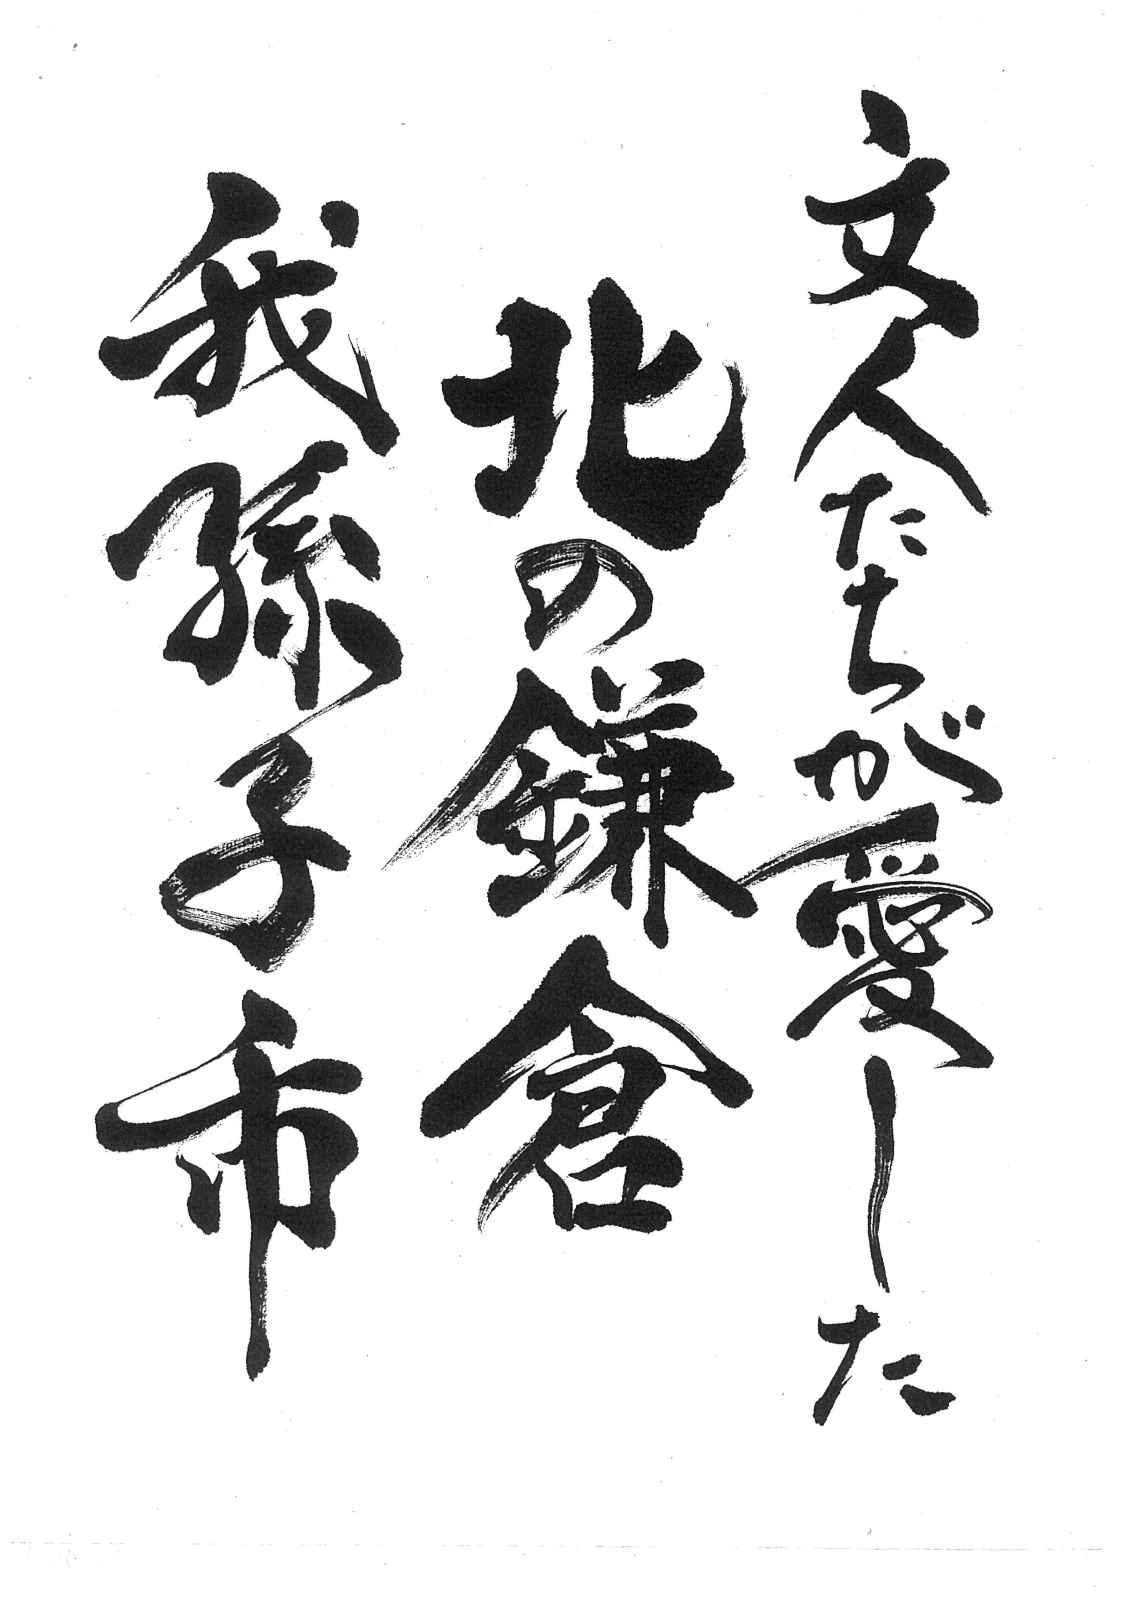 文人たちが愛した
北の鎌倉
我孫子市